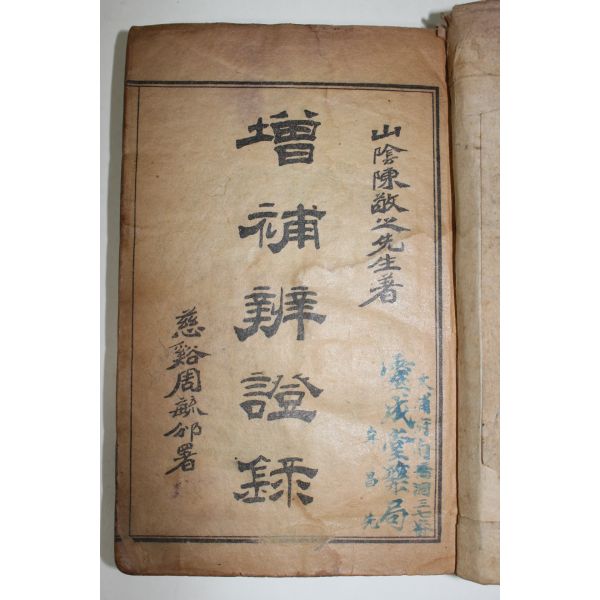 山陰陳敬之先生著
增補辨證錄
慈谿周毓邠署
成堂藥局
昌先